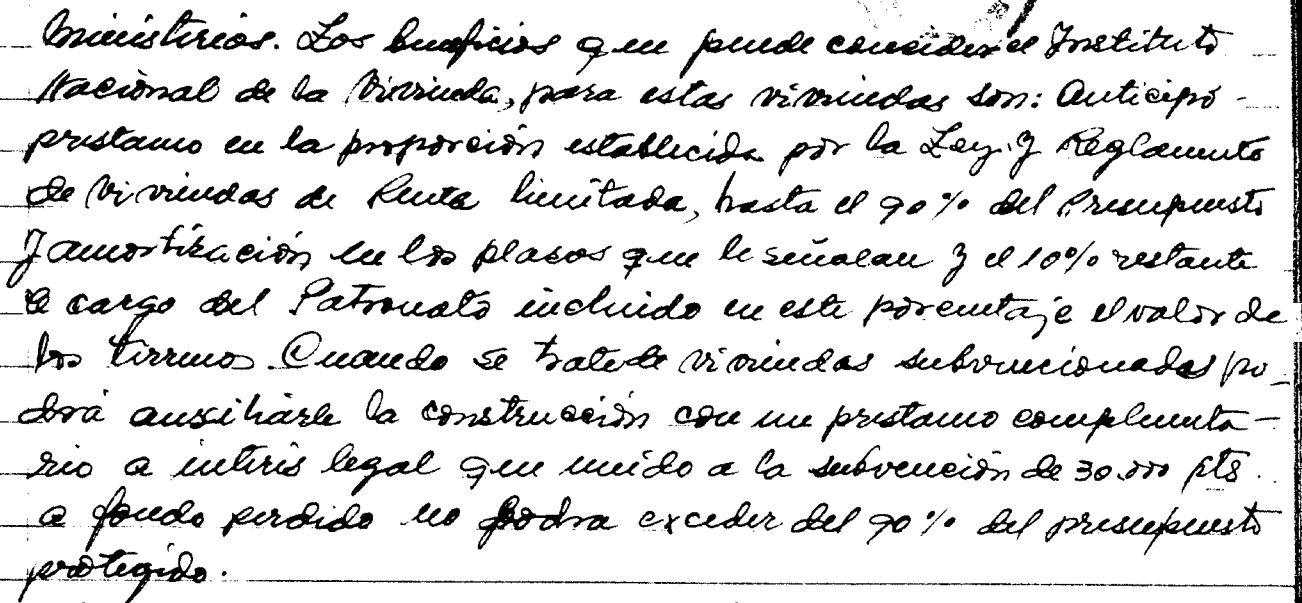 Ministerios. Los beneficios que puede conceder el Instituto
Nacional de la Vivienda, para estas viviendas son: Anticipo -
prestamo en la proporción establecida por la Ley y Reglamento
de Viviendas de Renta limitada, hasta el 90% del Presupuesto
y amortización en los plazos que se señalan y el 10% restante
a cargo del Patronato incluido en este porcentaje el valor de
los terrenos. Cuando se trate de viviendas subvencionadas po-
drá auxiliarse la construcción con un prestamo complementa-
rio a interés legal que unido a la subvención de 30.000 pts.
a fondo perdido no podra exceder del 90% del presupuesto
protegido.